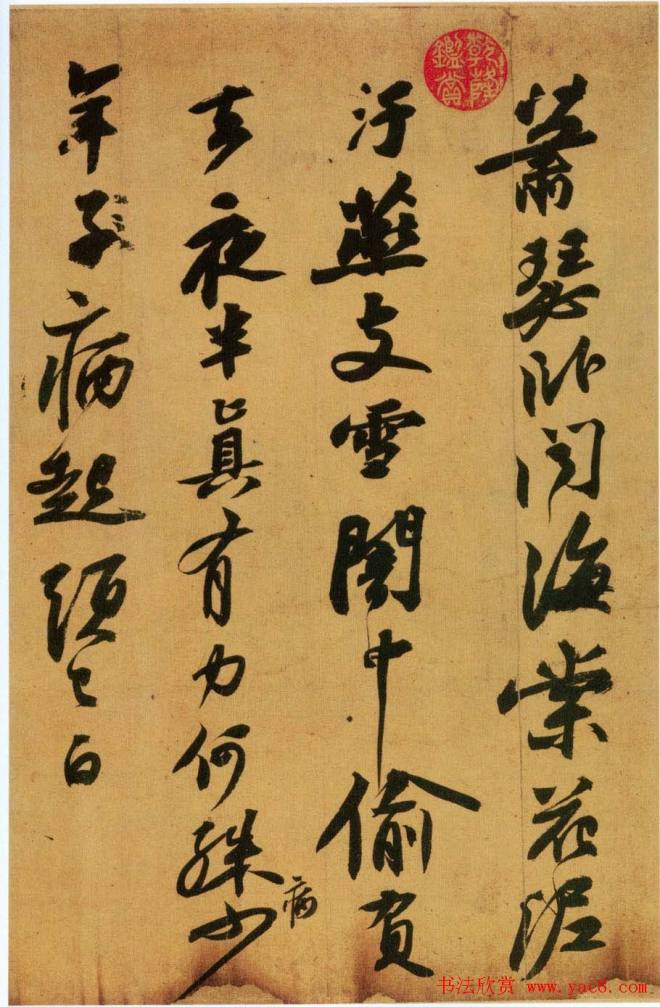 蕭瑟卧聞海棠花泥
汙燕支雪闇中偷負
去夜半真有力何殊少
病
年子病起頭已白
乾隆鑑賞
书法欣赏 www.yac8.com